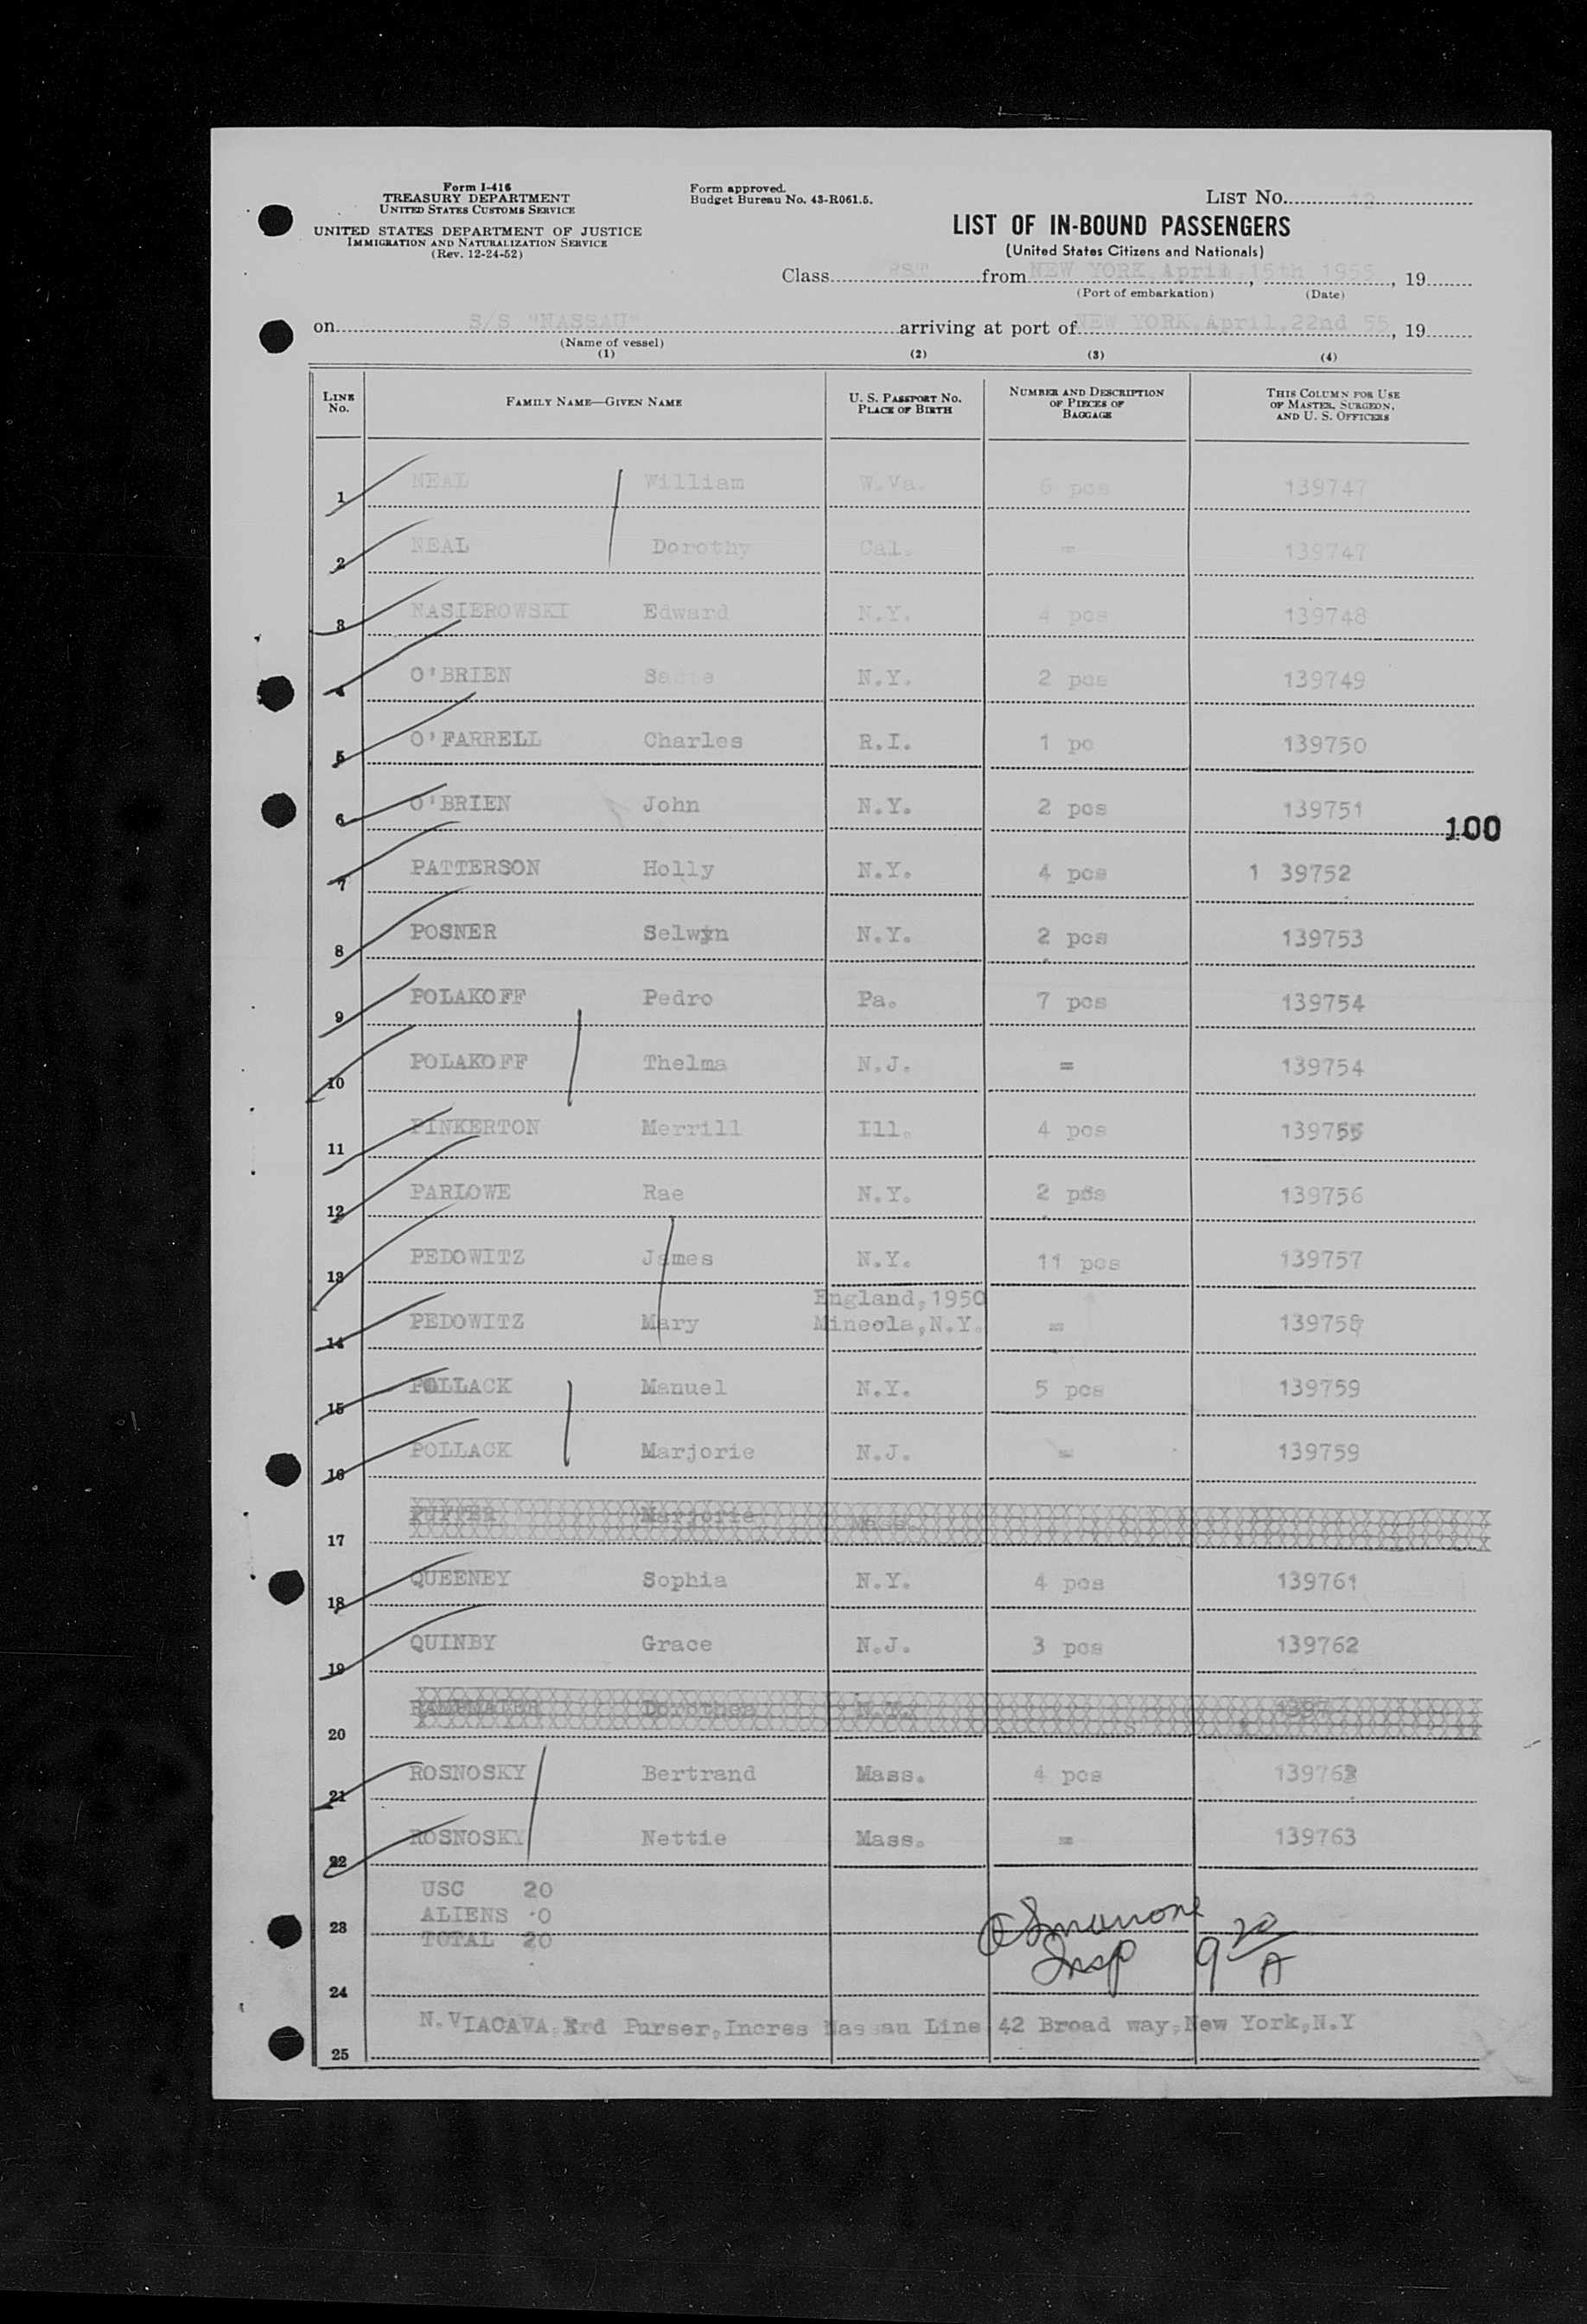 Form I-416
TREASURY DEPARTMENT
UNITED STATES CUSTOMS SERVICE
UNITED STATES DEPARTMENT OF JUSTICE
IMMIGRATION AND NATURALIZATION SERVICE
(Rev. 12-24-52)
Form approved.
Budget Bureau No. 43-R061.5.
LIST No. 12
LIST OF IN-BOUND PASSENGERS
(United States Citizens and Nationals)
Class RST from NEW YORK, April, 15th 1955, 19
(Port of embarkation) (Date)
on S/S "NASSAU" arriving at port of NEW YORK, April, 22nd 55, 19
(Name of vessel)
(1) (2) (3) (4)
LINE No. FAMILY NAME—GIVEN NAME U. S. PASSPORT No. PLACE OF BIRTH NUMBER AND DESCRIPTION OF PIECES OF BAGGAGE THIS COLUMN FOR USE OF MASTER, SURGEON, AND U. S. OFFICERS
1 NEAL William W.Va. 6 pcs 139747
2 NEAL Dorothy Cal. = 139747
3 NASIEROWSKI Edward N.Y. 4 pcs 139748
4 O'BRIEN N.Y. 2 pcs 139749
5 O'FARRELL Charles R.I. 1 pc 139750
6 O'BRIEN John N.Y. 2 pcs 139751
100
7 PATTERSON Holly N.Y. 4 pcs 1 39752
8 POSNER Selwyn N.Y. 2 pcs 139753
9 POLAKOFF Pedro Pa. 7 pcs 139754
10 POLAKOFF Thelma N.J. = 139754
11 PINKERTON Merrill Ill. 4 pcs 139755
12 PARLOWE Rae N.Y. 2 pcs 139756
13 PEDOWITZ James N.Y. 11 pcs 139757
England,1950
14 PEDOWITZ Mary Mineola,N.Y. = 139758
15 POLLACK Manuel N.Y. 5 pcs 139759
16 POLLACK Marjorie N.J. = 139759
17 PUFFER Marjorie Mass.
18 QUEENEY Sophia N.Y. 4 pcs 139761
19 QUINBY Grace N.J. 3 pcs 139762
20 N.Y.
21 ROSNOSKY Bertrand Mass. 4 pcs 139763
22 ROSNOSKY Nettie Mass. = 139763
USC 20
ALIENS 0
23 TOTAL 20
Insp
24
N. VIACAVA, 3rd Purser, Incres Nassau Line 42 Broad way, New York, N.Y
25